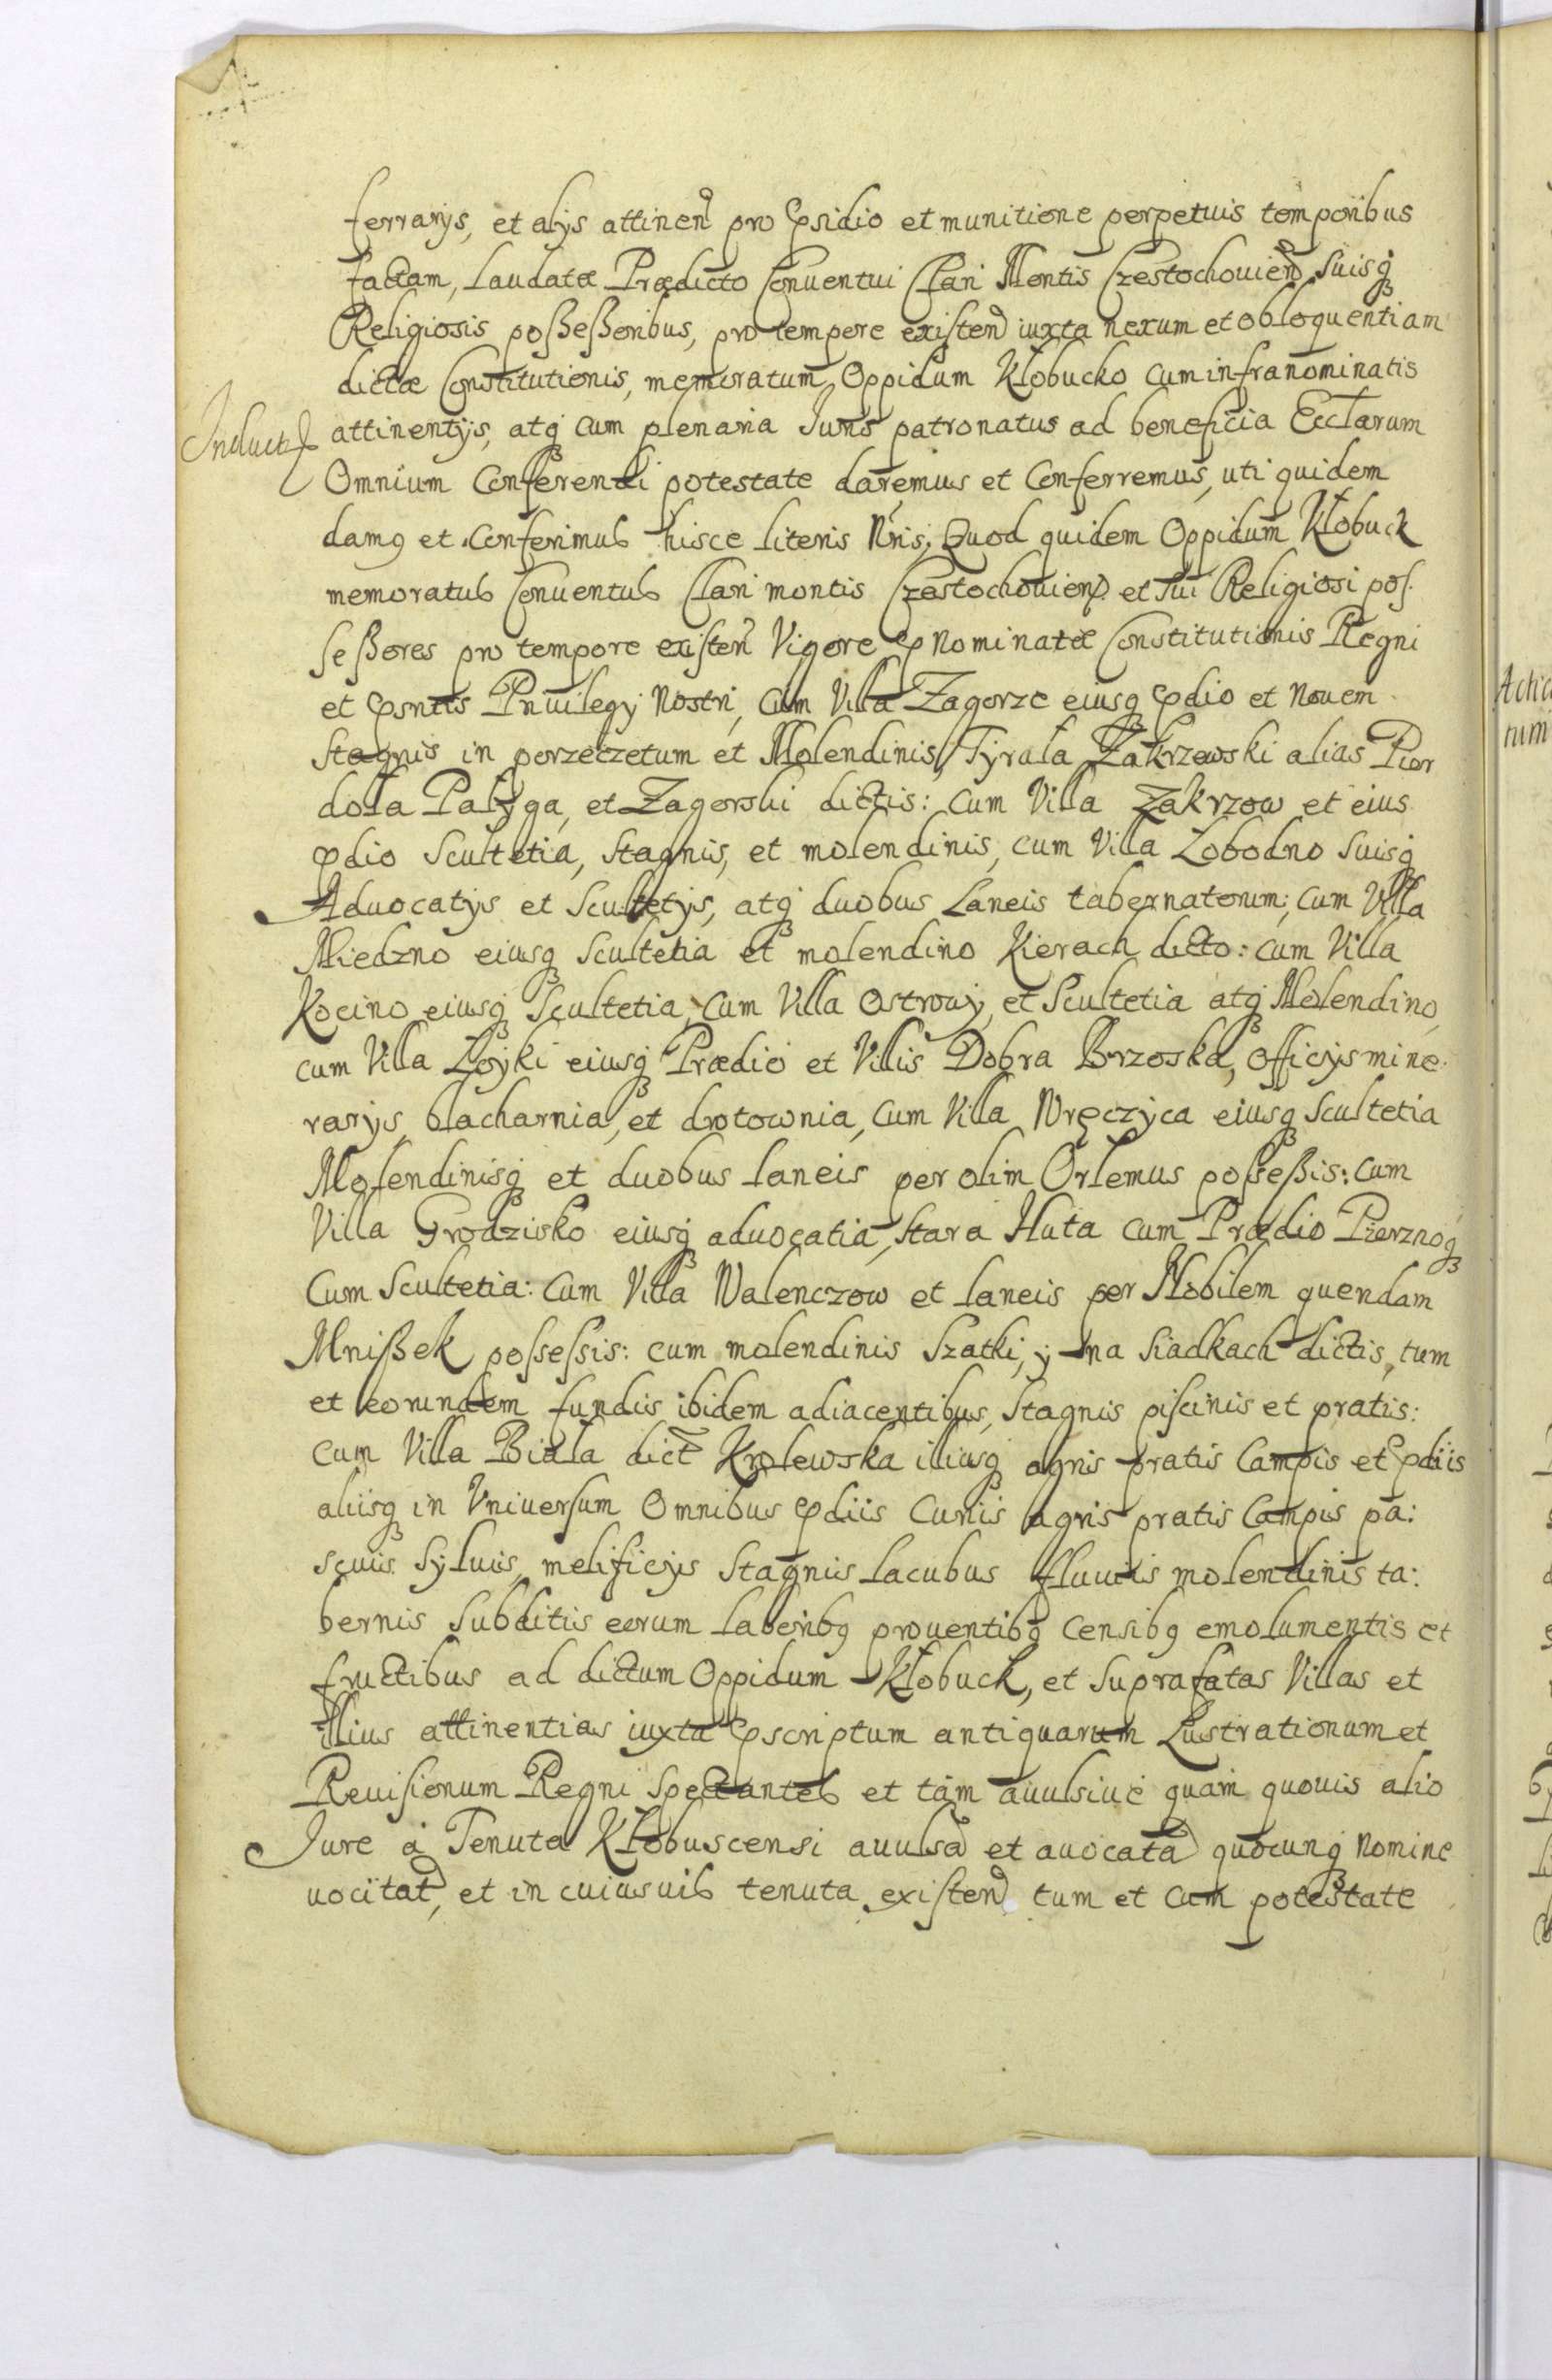 ferrarys, et alys attinen pro Psidio et munitione perpetuis temporibus
factam, laudatæ Prædicto Conuentui Clari Montis Czestochouien Suisq
Religiosis poßeßoribus, pro tempore existen iuxta nexum et obloquentiam
dictæ Constitutionis, memoratum Oppidum Kłobucko cum infranominatis
attinentys, atq cum plenaria Juris patronatus ad beneficia Ecclarum
Omnium Conferendi potestate daremus et Conferremus, uti quidem
damq et Conferimus hisce literis Nris, Quod quidem Oppidum Kłobuck
memoratus Conuentus Clari montis Czestochouien et sui Religiosi pos.
seßores pro tempore existen Vigore Pnominatæ Constitutionis Regni
et Psntis Priuilegy Nostri, Cum Villa Zagorze eiusq Pdio et Nouem
Stagnis in porzeczetum et Molendinis, Tyrała Zakrzewski alias Pier
doła Pałyga, et Zagorski dictis: Cum Villa Zakrzow et eius
Pdio Scultetia, Stagnis, et molendinis, cum Villa Łobodno Suisq
Aduocatys et Scultetys, atq duobus Laneis tabernatorum; Cum Villa
Miedzno eiusq Scultetia et molendino Kierach dicto: Cum Villa
Kocino eiusq Scultetia, Cum Villa Ostrowy, et Scultetia atq Molendino,
cum Villa Łoyki eiusq Prædio et Villis Dobra Brzoska, officys mine.
rarys, blacharnia, et drotownia, Cum Villa Wręczyca eiusq Scultetia
Molendinisq et duobus laneis per olim Orlemus posseßis: Cum
Villa Grodzisko eiusq aduocatia, Stara Huta cum Prædio Pierznoq
Cum Scultetia: Cum Villa Walenczow et laneis per Nobilem quendam
Mnißek possessis: cum molendinis Szatki, y na Siadkach dictis, tum
et eorundem fundis ibidem adiacentibus, Stagnis piscinis et pratis:
cum Villa Biała dict Krolewska illiusq agris pratis Campis et Pdiis
aliisq in Vniuersum Omnibus Pdiis Curiis agris pratis Campis pa:
scuis Syluis, melificys Stagnis lacubus fluuiis molendinis ta:
bernis Subditis eorum laboribq prouentibq Censibq emolumentis et
fructibus ad dictum Oppidum Kłobuck, et Suprafatas Villas et
illius attinentias iuxta Pscriptum antiquarum Lustrationum et
Reuisionum Regni Spectantes et tam auulsiue quam quouis alio
Jure à Tenuta Kłobuscensi auulsa et auocata quocunq Nomine
uocitat, et in cuiusuis tenuta existen tum et cum potestate